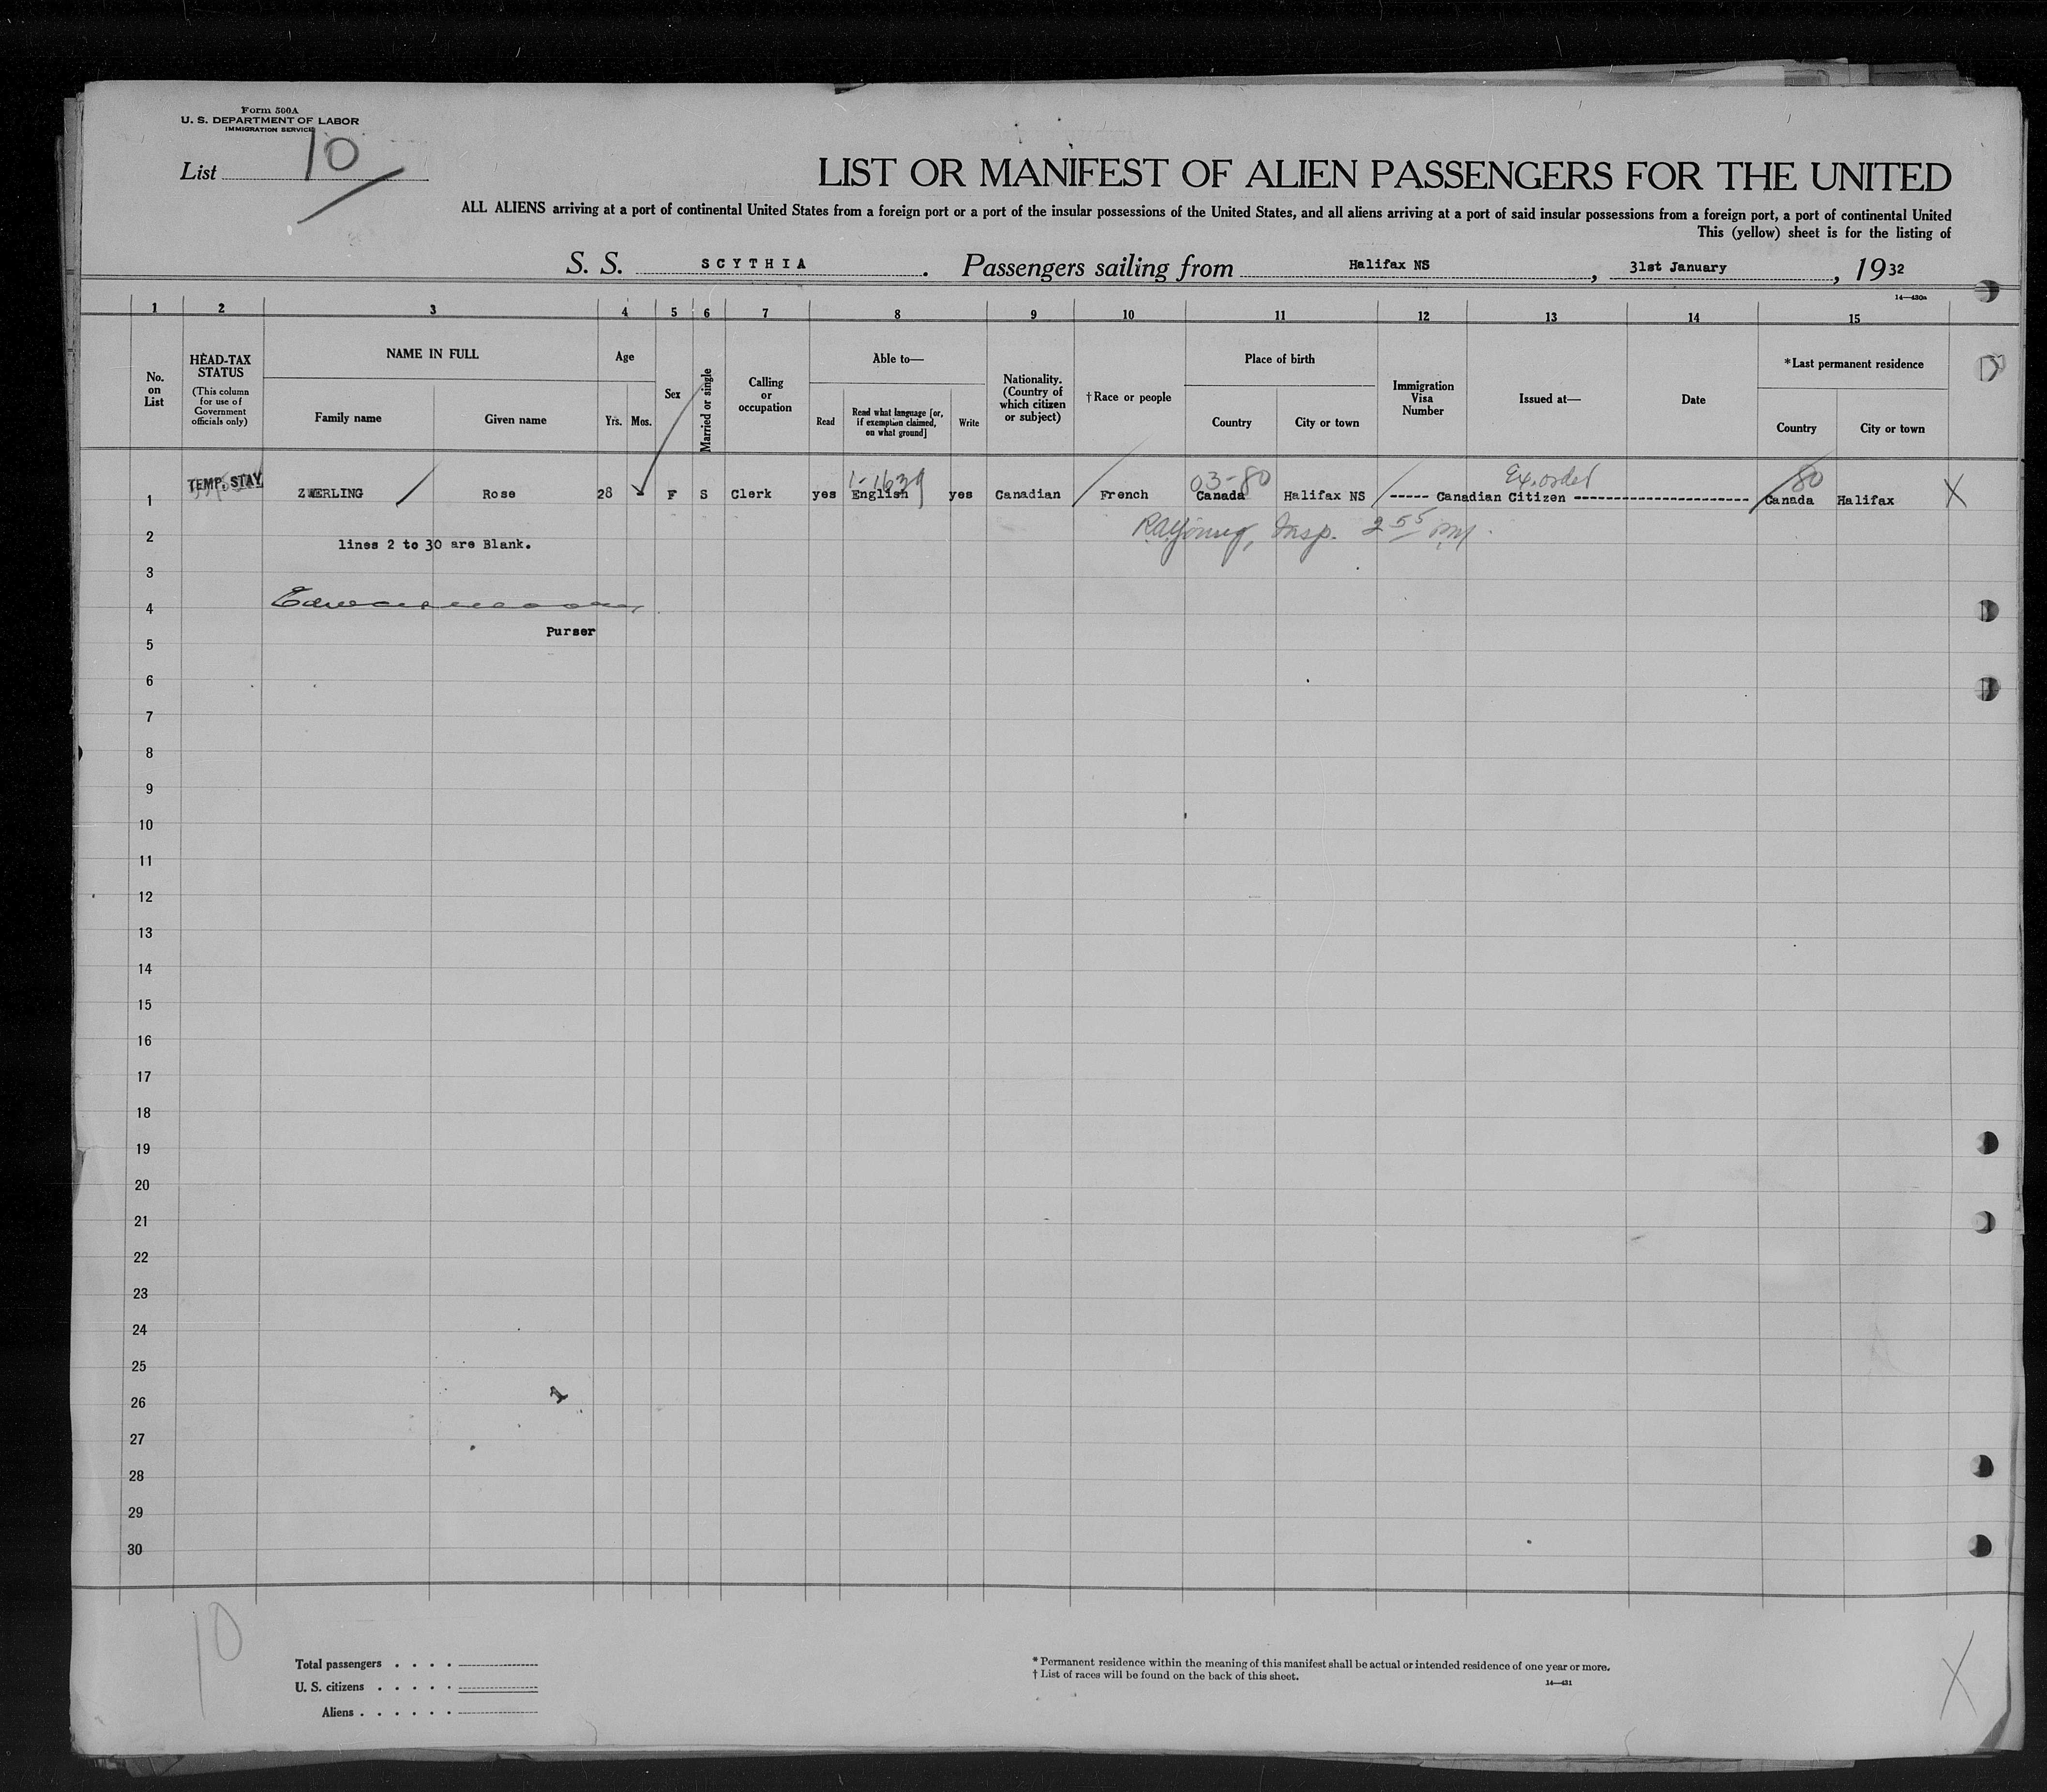 Form 500A
U. S. DEPARTMENT OF LABOR
IMMIGRATION SERVICE
List 10
LIST OR MANIFEST OF ALIEN PASSENGERS FOR THE UNITED
ALL ALIENS arriving at a port of continental United States from a foreign port or a port of the insular possessions of the United States, and all aliens arriving at a port of said insular possessions from a foreign port, a port of continental United
This (yellow) sheet is for the listing of
S. S. SCYTHIA. Passengers sailing from Halifax NS, 31st January, 1932
14—430a
1 2 3 4 5 6 7 8 9 10 11 12 13 14 15
No. on List
HEAD-TAX STATUS
(This column for use of Government officials only)
NAME IN FULL
Family name
Given name
Age
Yrs.
Mos.
Sex
Married or single
Calling or occupation
Able to—
Read
Read what language [or, if exemption claimed, on what ground]
Write
Nationality. (Country of which citizen or subject)
†Race or people
Place of birth
Country
City or town
Immigration Visa Number
Issued at—
Date
*Last permanent residence
Country
City or town
1-1639 03-80 Ex. order 80
1 TEMP. STAY ZWERLING Rose 28 - F S Clerk yes English yes Canadian French Canada Halifax NS ----- Canadian Citizen ---------------------- Canada Halifax X
Insp. 2 55 PM
2 lines 2 to 30 are Blank.
3
4
Purser
5
6
7
8
9
10
11
12
13
14
15
16
17
18
19
20
21
22
23
24
25
26
27
28
29
30
10
Total passengers . . . .
U. S. citizens . . . . .
Aliens . . . . . .
* Permanent residence within the meaning of this manifest shall be actual or intended residence of one year or more.
† List of races will be found on the back of this sheet.
14—431
X